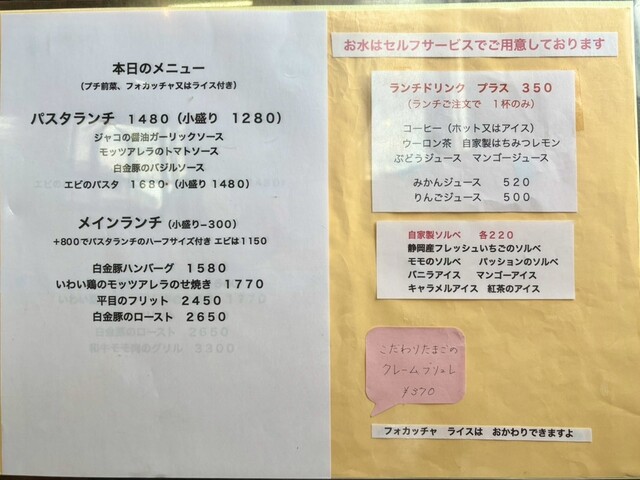 本日のメニュー
（プチ前菜、フォカッチャ又はライス付き）
パスタランチ　1480（小盛り　1280）
ジャコの醤油ガーリックソース
モッツアレラのトマトソース
白金豚のバジルソース
エビのパスタ　1680（小盛り 1480）
メインランチ（小盛り−300）
＋800でパスタランチのハーフサイズ付き エビは1150
白金豚ハンバーグ　1580
いわい鶏のモッツアレラのせ焼き　1770
平目のフリット　2450
白金豚のロースト　2650
お水はセルフサービスでご用意しております
ランチドリンク　プラス　350
（ランチご注文で　1杯のみ）
コーヒー（ホット又はアイス）
ウーロン茶　自家製はちみつレモン
ぶどうジュース　マンゴージュース
みかんジュース　520
りんごジュース　500
自家製ソルベ　各220
静岡産フレッシュいちごのソルベ
モモのソルベ　パッションのソルベ
バニラアイス　マンゴーアイス
キャラメルアイス　紅茶のアイス
こだわりたまごの
クレームブリュレ
¥370
フォカッチャ　ライスは　おかわりできますよ